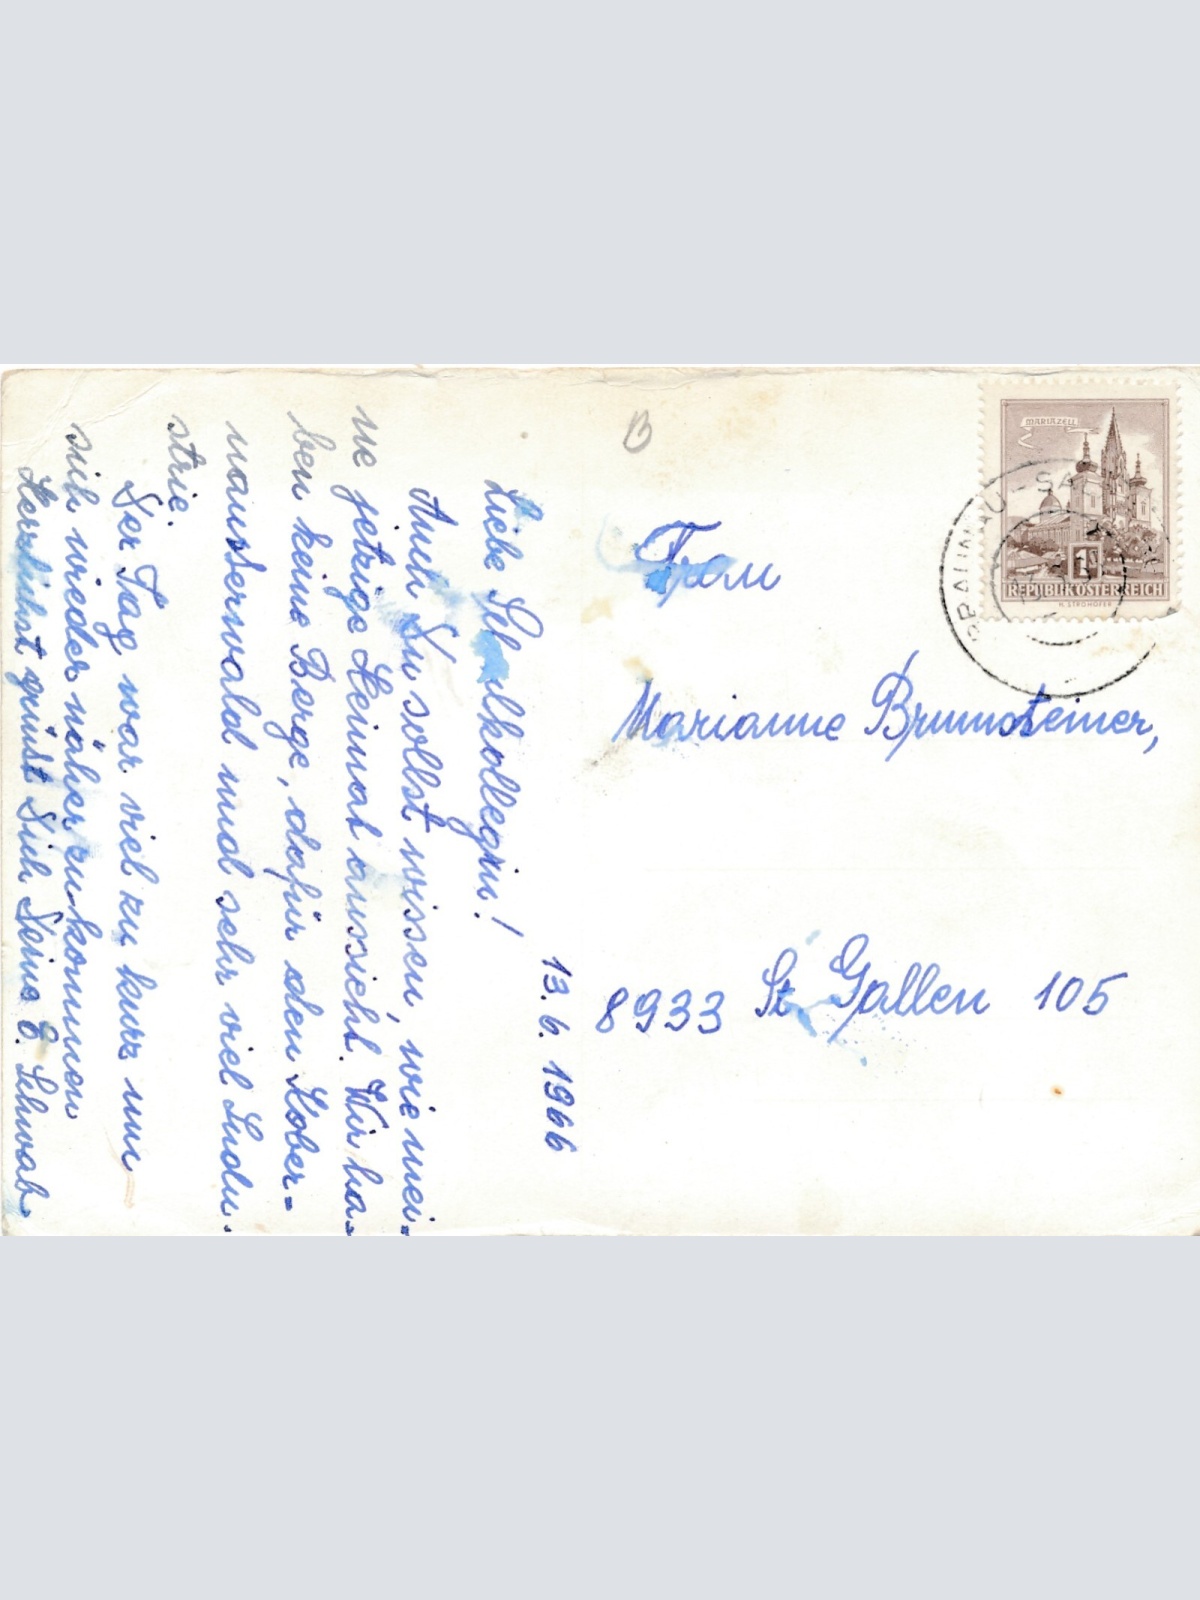 13. 6. 1966
Liebe Schulkollegin!
Auch Du sollst wissen, wie mei-
ne jetzige Heimat aussieht. Wir ha-
ben keine Berge, dafür den Kober-
nausserwald und sehr viel Indu-
strie.
Der Tag war viel zu kurz um
sich wieder näher zu kommen
Herzlichst grüsst Dich Deine E. Schwab
B
Frau
Marianne Brunnsteiner,
8933 St. Gallen 105
MARIAZELL
1
REPUBLIK ÖSTERREICH
H. STROHOFER